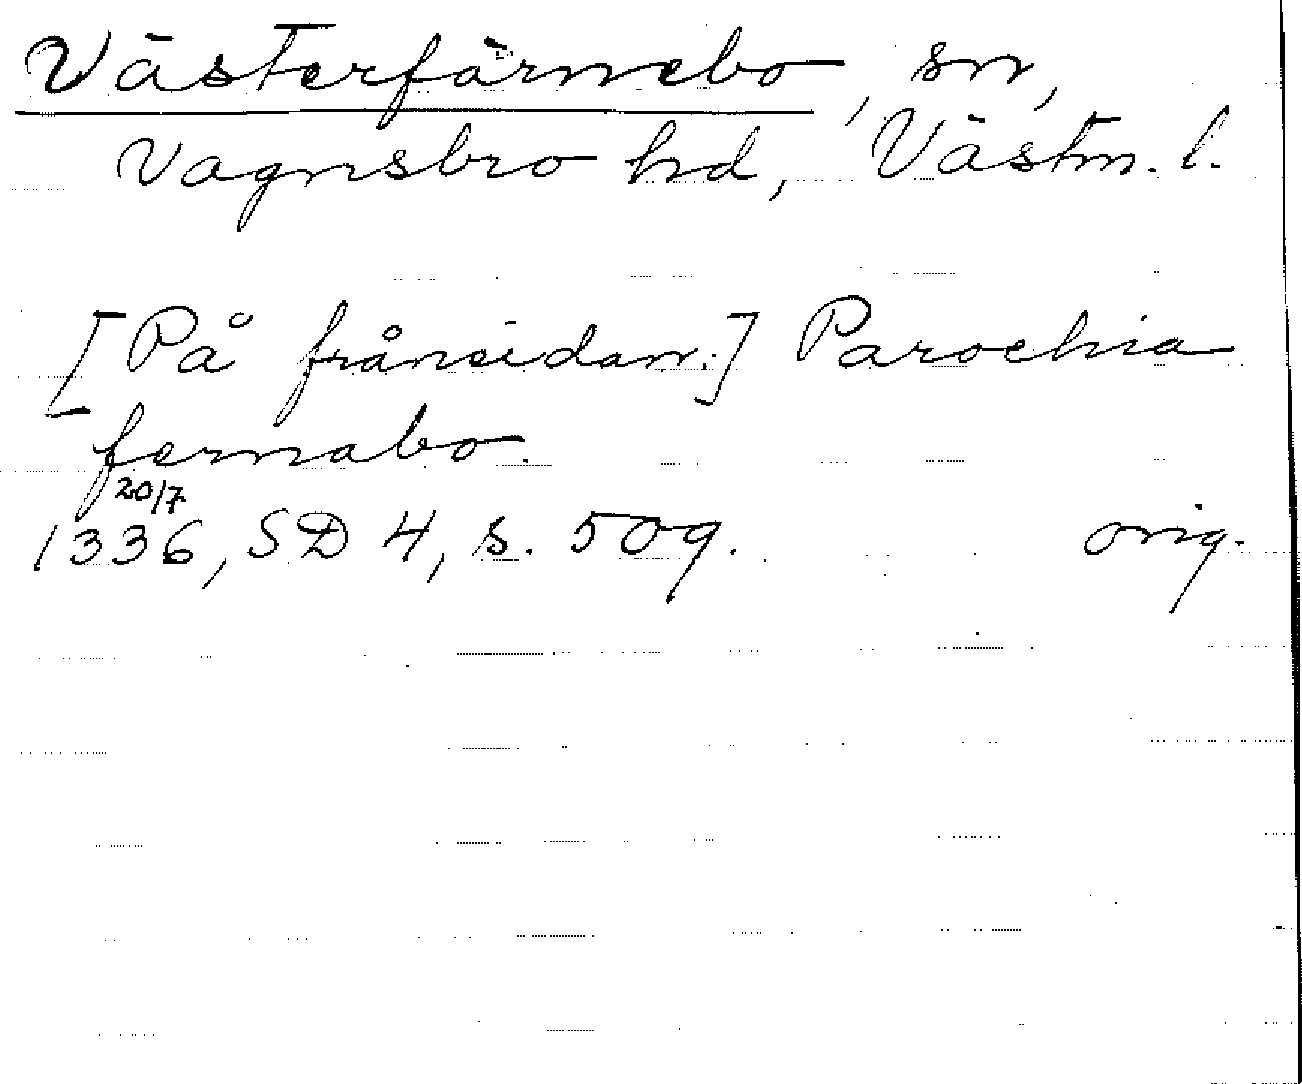 Västerfärnebo, sn,
Vagnsbro hd, Västm. l.
[På frånsidan:] Parochia
fernabo.
20/7
1336, SD 4, s. 509. orig.